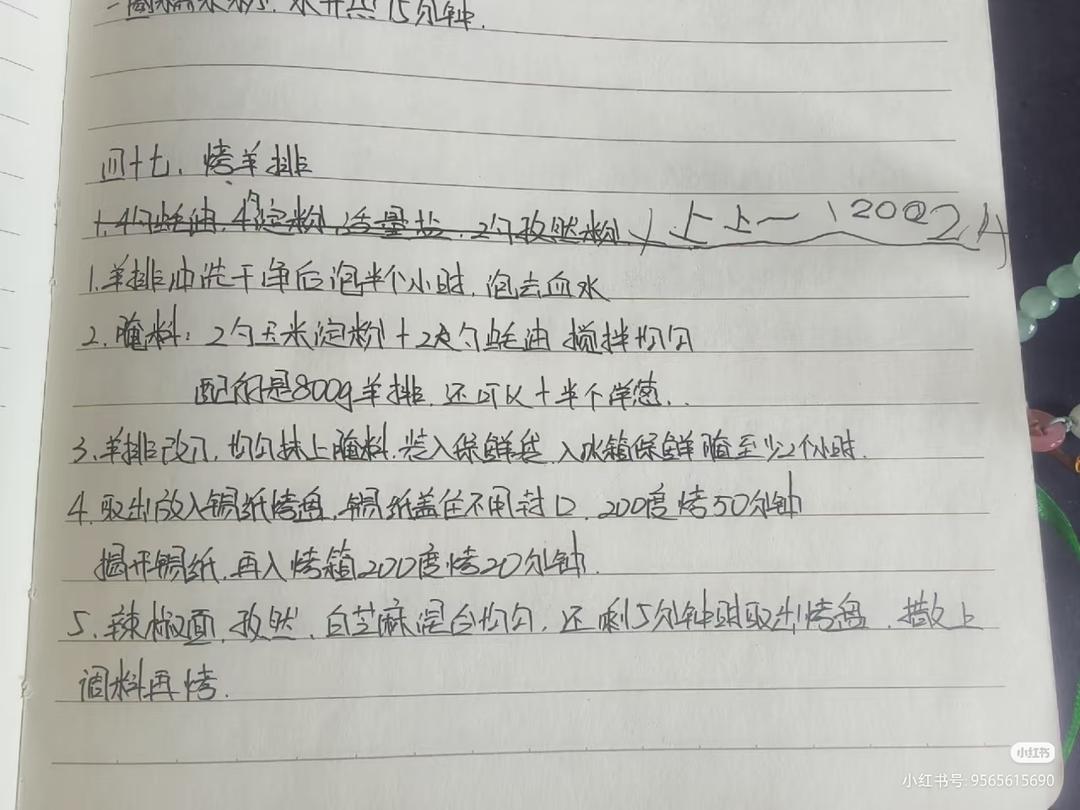 水开蒸15分钟.
四十七、烤羊排
1.4勺蚝油.4勺淀粉.适量盐.2勺孜然粉
1.羊排冲洗干净后泡半个小时.泡去血水
2.腌料:2勺玉米淀粉+2大勺蚝油 搅拌均匀
配的是800g羊排.还可以+半个洋葱..
3.羊排改刀.均匀抹上腌料.装入保鲜袋.入冰箱保鲜腌至少2个小时.
4.取出放入锡纸烤盘.锡纸盖住不用封口.200度烤50分钟
揭开锡纸.再入烤箱200度烤20分钟.
5.辣椒面.孜然.白芝麻混合均匀.还剩5分钟时取出烤盘.撒上
调料再烤.
小红书
小红书号:9565615690